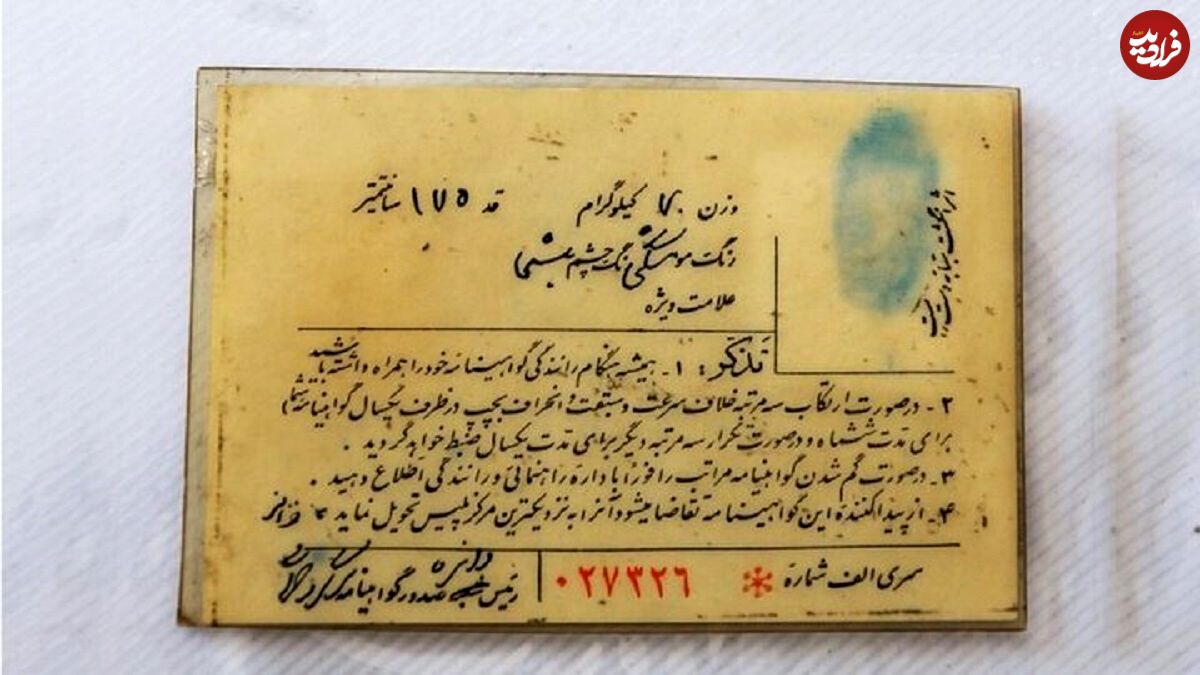 فرادید
وزن ۷۰ کیلوگرام قد ۱۷۵ سانتیمتر
رنگ مو مشکی رنگ چشم میشی
علامت ویژه
اثر انگشت سبابه دست راست
تذکر: ۱- همیشه هنگام رانندگی گواهینامه خود را همراه داشته باشید
۲- درصورت ارتکاب سه مرتبه خلاف سرعت و سبقت و انحراف بچپ در ظرف یکسال گواهینامه شما
برای مدت ششماه و درصورت تکرار سه مرتبه دیگر برای مدت یکسال ضبط خواهد گردید .
۳- درصورت گم شدن گواهینامه مراتب را فوراً باداره راهنمائی و رانندگی اطلاع دهید .
۴- از پیدا کننده این گواهینامه تقاضا میشود آنرا به نزدیکترین مرکز پلیس تحویل نماید
سری الف شماره * ۰۲۷۳۲۶
رئیس صدور گواهینامه